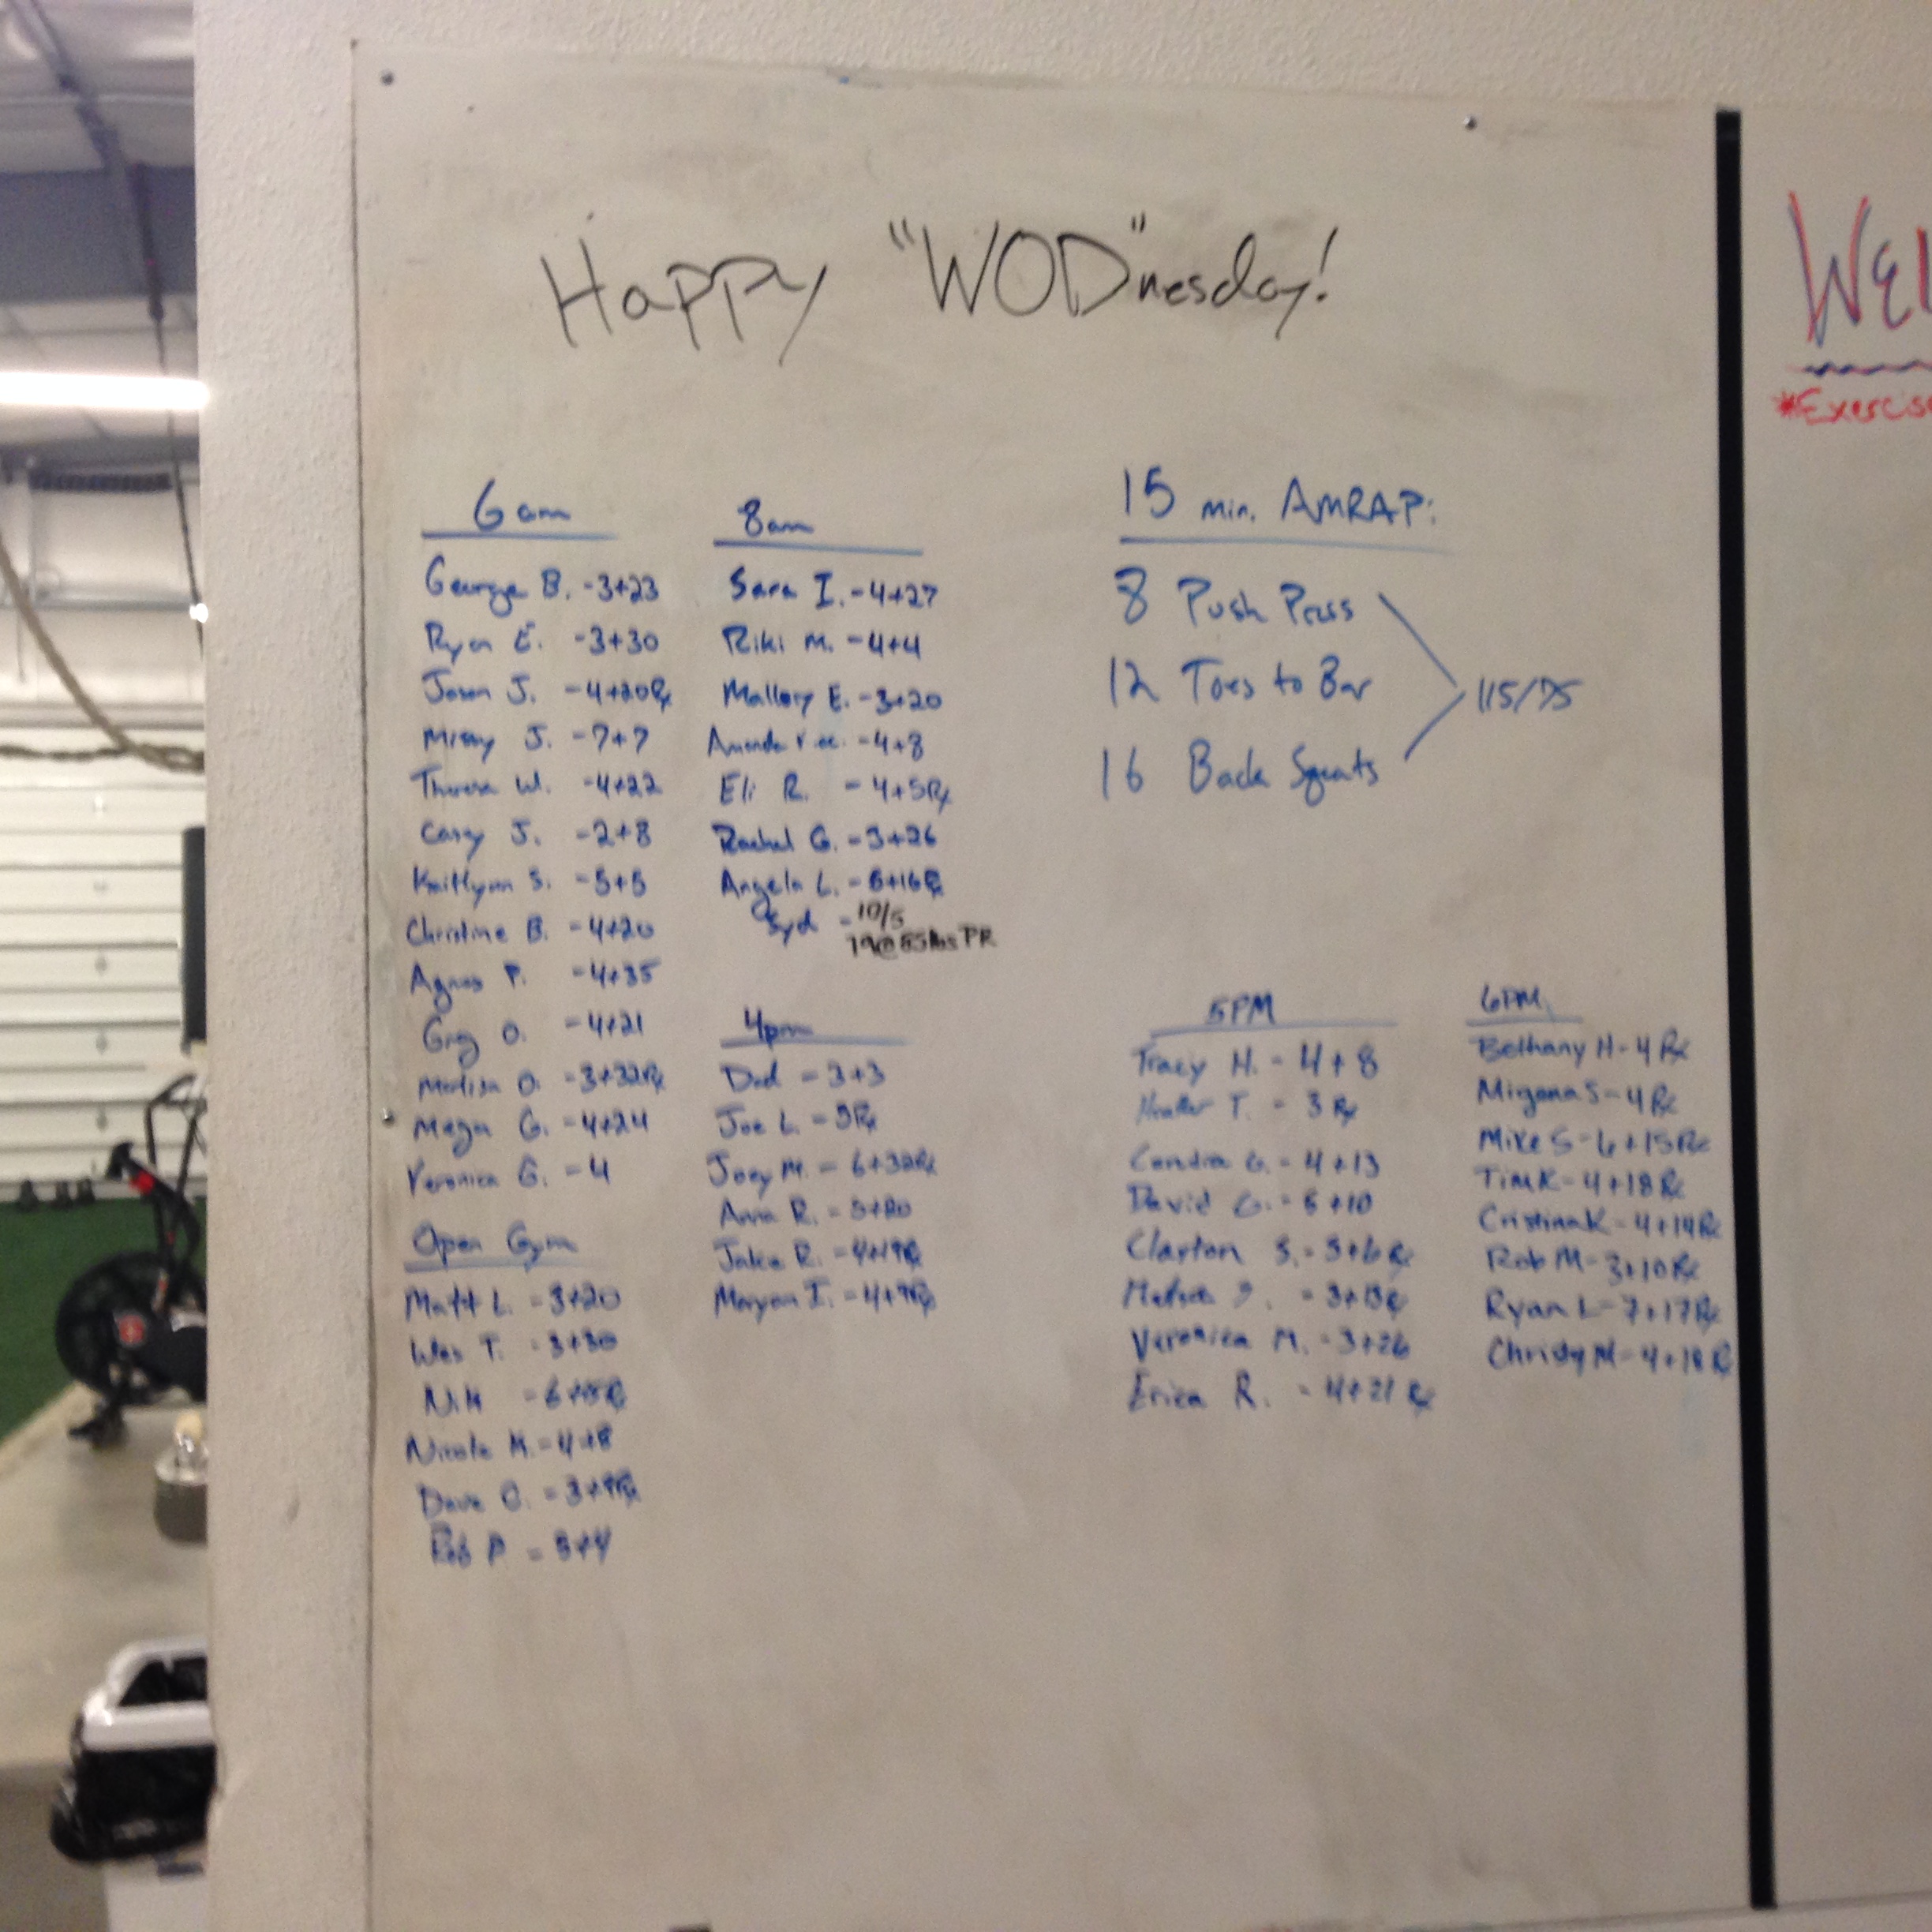 Happy "WOD"nesday!
6am
George B. -3+23
Ryan E. -3+30
Jason J. -4+20Rx
Missy J. -7+7
Theresa W. -4+22
Casey J. -2+8
Kaitlynn S. -5+5
Christine B. -4+20
Agnes P. -4+35
Greg O. -4+21
O. -3+32Rx
Megan G. -4+24
Veronica G. -4
Open Gym
Matt L. -3+20
Wes T. -3+30
Nicole M. -4+8
Dave C. -3+9Rx
Rob P -5+4
8am
Sara I. -4+27
Riki M. -4+4
Mallory E. -3+20
Amanda -4+8
Eli R. -4+5Rx
Rachel G. -3+26
Angela L. +16Rx
Syd - 10/5
85lbs PR
4pm
Dad -3+3
Joe L. -5Rx
Joey M. -6+32Rx
Anna R. -5+20
Jake R. -4+19Rx
Maryan I. -4+9Rx
15 min. AMRAP:
8 Push Press
12 Toes to Bar
115/75
16 Back Squats
5PM
Tracy H. - 4+8
Heather T. - 3Rx
G. - 4+13
David G. - 5+10
Clayton S. - 5+6Rx
- 3+13Rx
Veronica M. -3+26
Erica R. -4+21Rx
6PM
Bethany H-4Rx
Mirjana S-4Rx
Mike S-6+15Rx
Tim K-4+18Rx
Cristina K-4+14Rx
Rob M-3+10Rx
Ryan L-7+17Rx
Christy M-4+18Rx
WEL
*Exercis